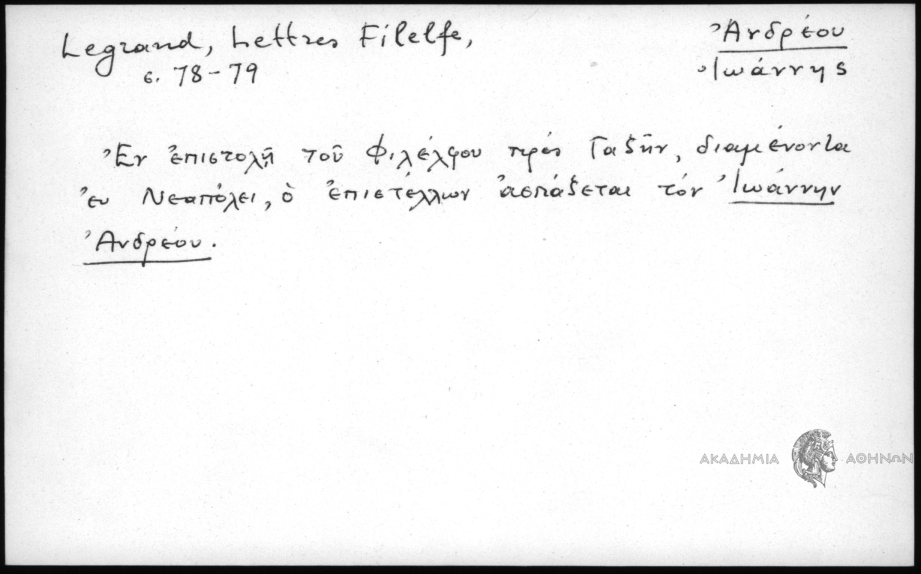 Legrand, Lettres Filelfe,
σ. 78-79
Ἀνδρέου
Ἰωάννης
Ἐν ἐπιστολῇ τοῦ Φιλέλφου πρός Γαζῆν, διαμένοντα
ἐν Νεαπόλει, ὁ ἐπιστέλλων ἀσπάζεται τόν Ἰωάννην
Ἀνδρέου.
ΑΚΑΔΗΜΙΑ ΑΘΗΝΩΝ